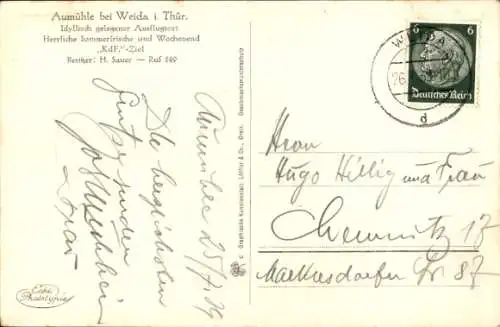 Aumühle bei Weida i. Thür.
Idyllisch gelegener Ausflugsort
Herrliche Sommerfrische und Wochenend
„KdF."-Ziel
Besitzer: H. Sauer — Ruf 589
Aumühle 25/7.39
Die herzlichsten
Grüße senden
u. Frau
Echte
Phototypie
Graphische Kunstanstalt Löffler & Co., Greiz.
WEIDA
26.
d
6
6
Deutsches Reich
Herrn
Hugo Hillig und Frau
Chemnitz 17
Markersdorfer Str 87